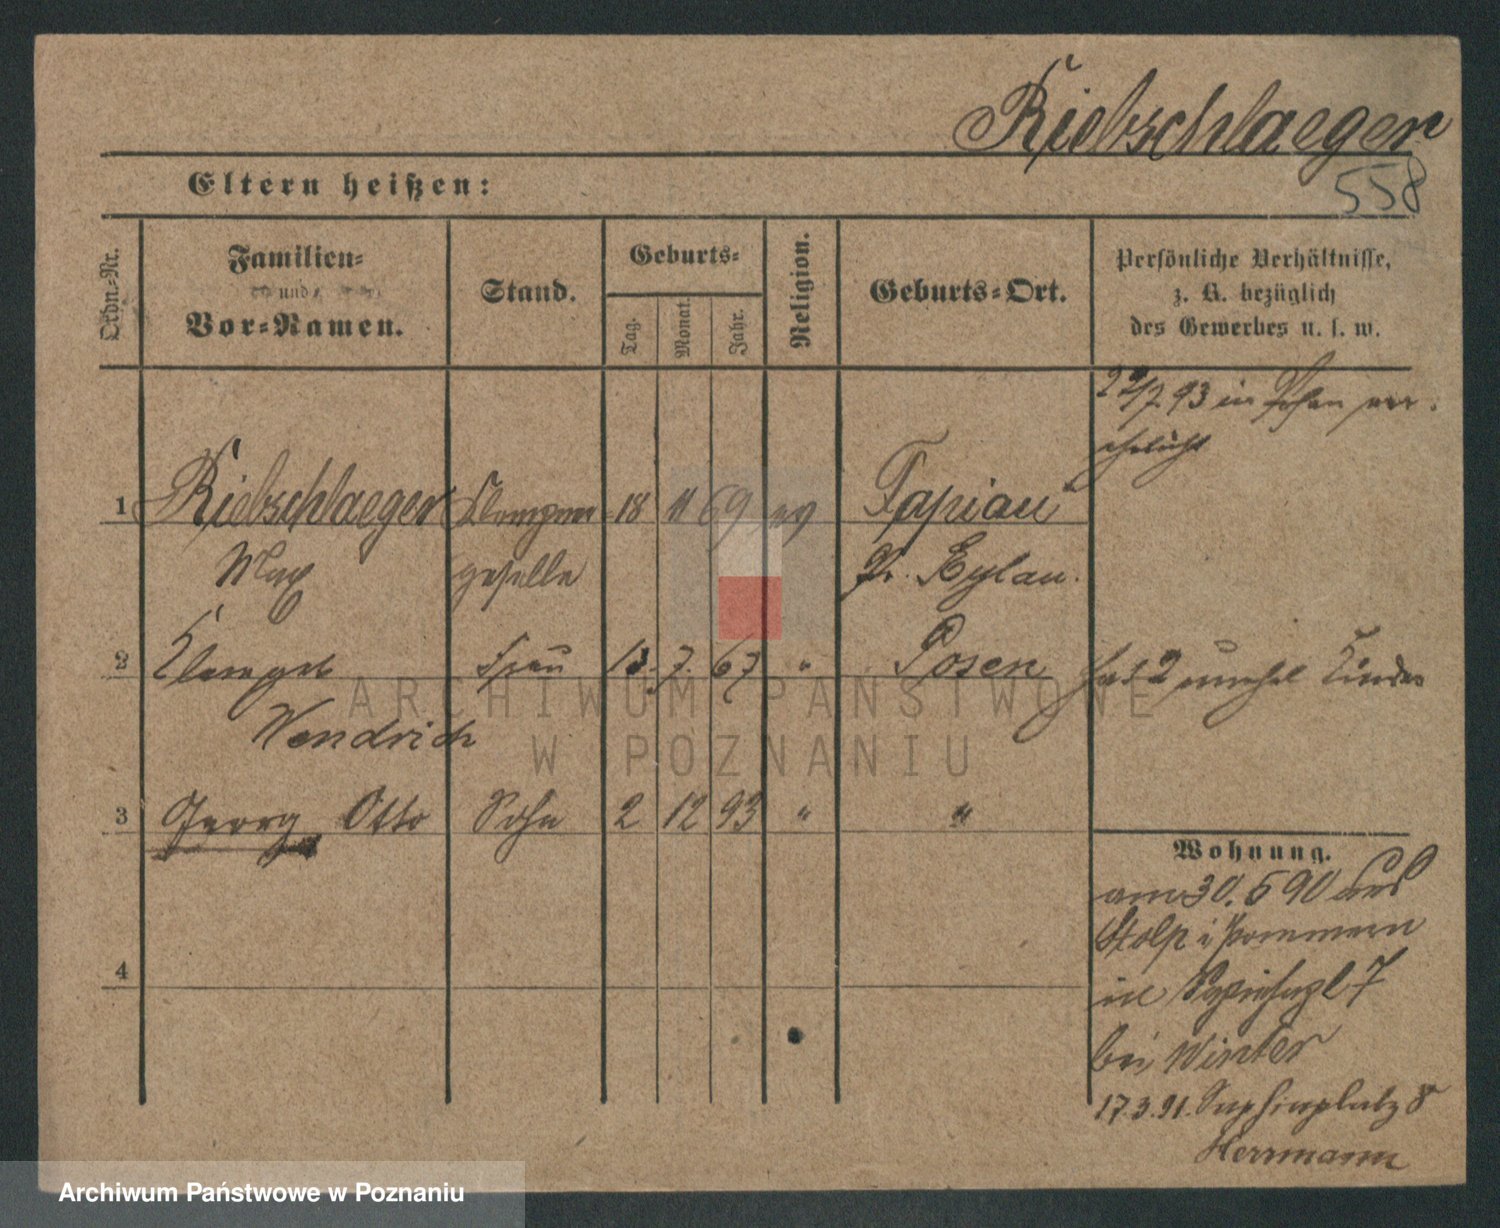 Riebschlaeger
558
Eltern heißen:
Ordn.-Nr.
Familien-
und
Vor-Namen.
Stand.
Geburts-
Tag.
Monat.
Jahr.
Religion.
Geburts-Ort.
Persönliche Verhältnisse,
z. B. bezüglich
des Gewerbes u. s. w.
22/7 93 in Posen ver-
ehelicht
1 Riebschlaeger Klempner- 18 11 69 ev Tapiau
Max geselle Pr. Eylau.
2 Klara geb Frau 13. 7. 67 " Posen hat 2 unehel Kinder
Wendrich
3 Georg Otto Sohn 2 12 93 " "
4
Wohnung.
am 30. 6 90 aus
Stolp i Pommern
in Sapiehapl 7
bei Winter
17.3.91. Sapiehaplatz 8
Herrmann
ARCHIWUM PAŃSTWOWE
W POZNANIU
Archiwum Państwowe w Poznaniu